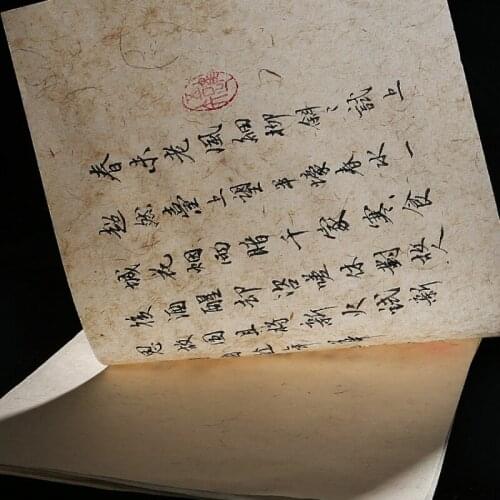 春未老風細柳斜〻試上
超然臺上望半壕春水一
城花烟雨暗千家寒食
後酒醒却咨嗟休對故人
思故國且將新火試新